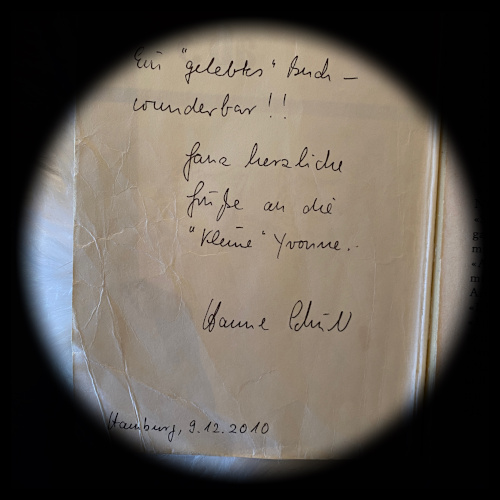 Ein "gelebtes" Buch –
wunderbar!!
Ganz herzliche
Grüße an die
"kleine" Yvonne.
Hanne
Hamburg, 9.12.2010